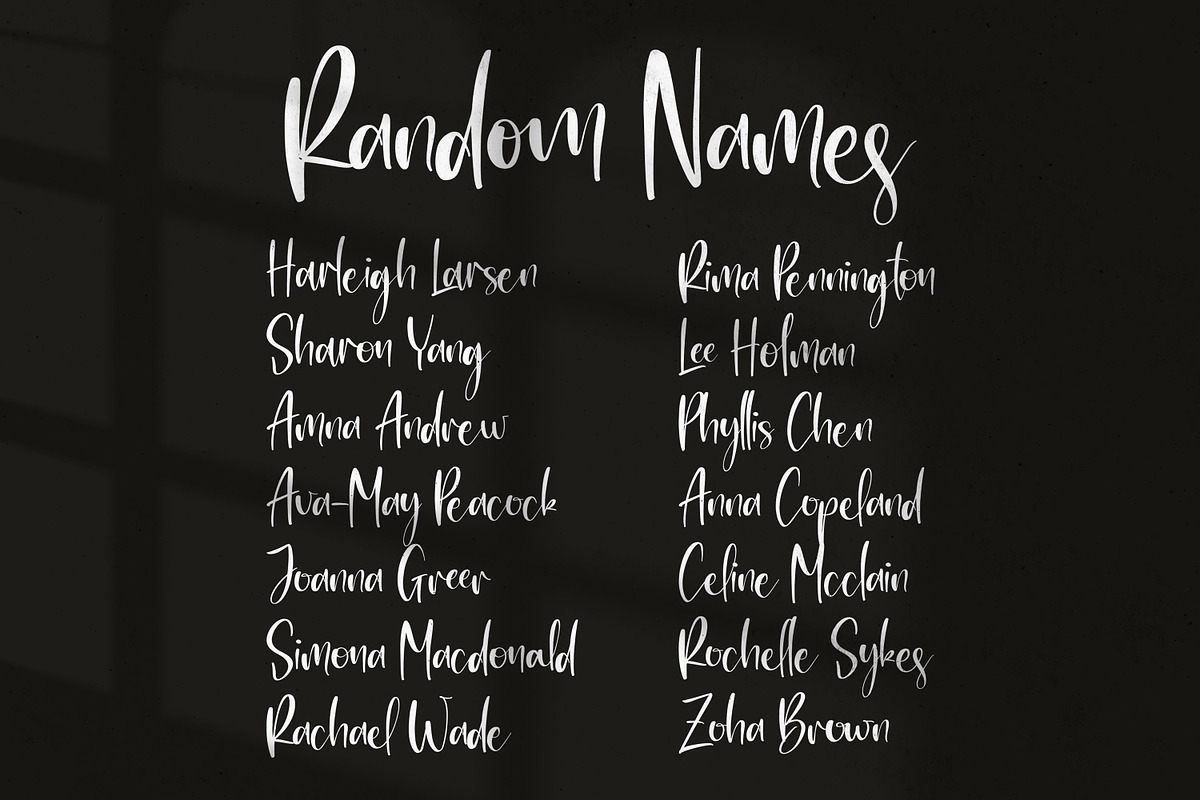 Random Names
Harleigh Larsen
Sharon Yang
Amna Andrew
Ava-May Peacock
Joanna Greer
Simona Macdonald
Rachael Wade
Rima Pennington
Lee Holman
Phyllis Chen
Anna Copeland
Celine Mcclain
Rochelle Sykes
Zoha Brown